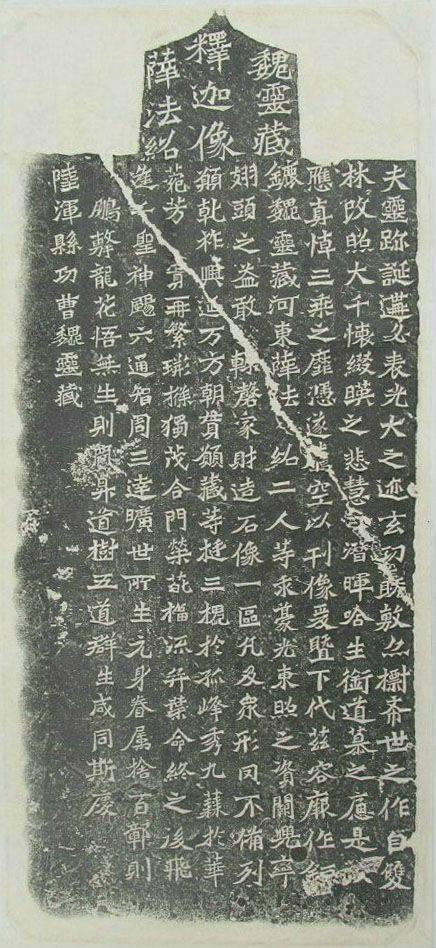 魏靈藏
釋迦像
薛法紹
夫靈跡誕遘必表光大之迹玄功既敷亦標希世之作自雙
林改照大千懷綴暎之悲慧潛暉唅生銜道慕之是
應真悼三乘之靡憑遂空以刊像爰暨下代茲容廓作
魏靈藏河東薛法紹二人等求豪光東照之資闕兜率
翅頭之益敢輒磬家財造石像一區凡及眾形罔不備列
願乾祚興延万方朝貫願藏等挺三槐於孤峰秀九蕀於華
菀芳實再繁荊條獨茂合門榮葩福流奕葉命終之後飛
逢聖神颺六通智周三達曠世所生元身眷屬捨百鄣則
鵬擊龍花悟無生則鳳昇道樹五道群生咸同斯慶
陸渾縣功曹魏靈藏